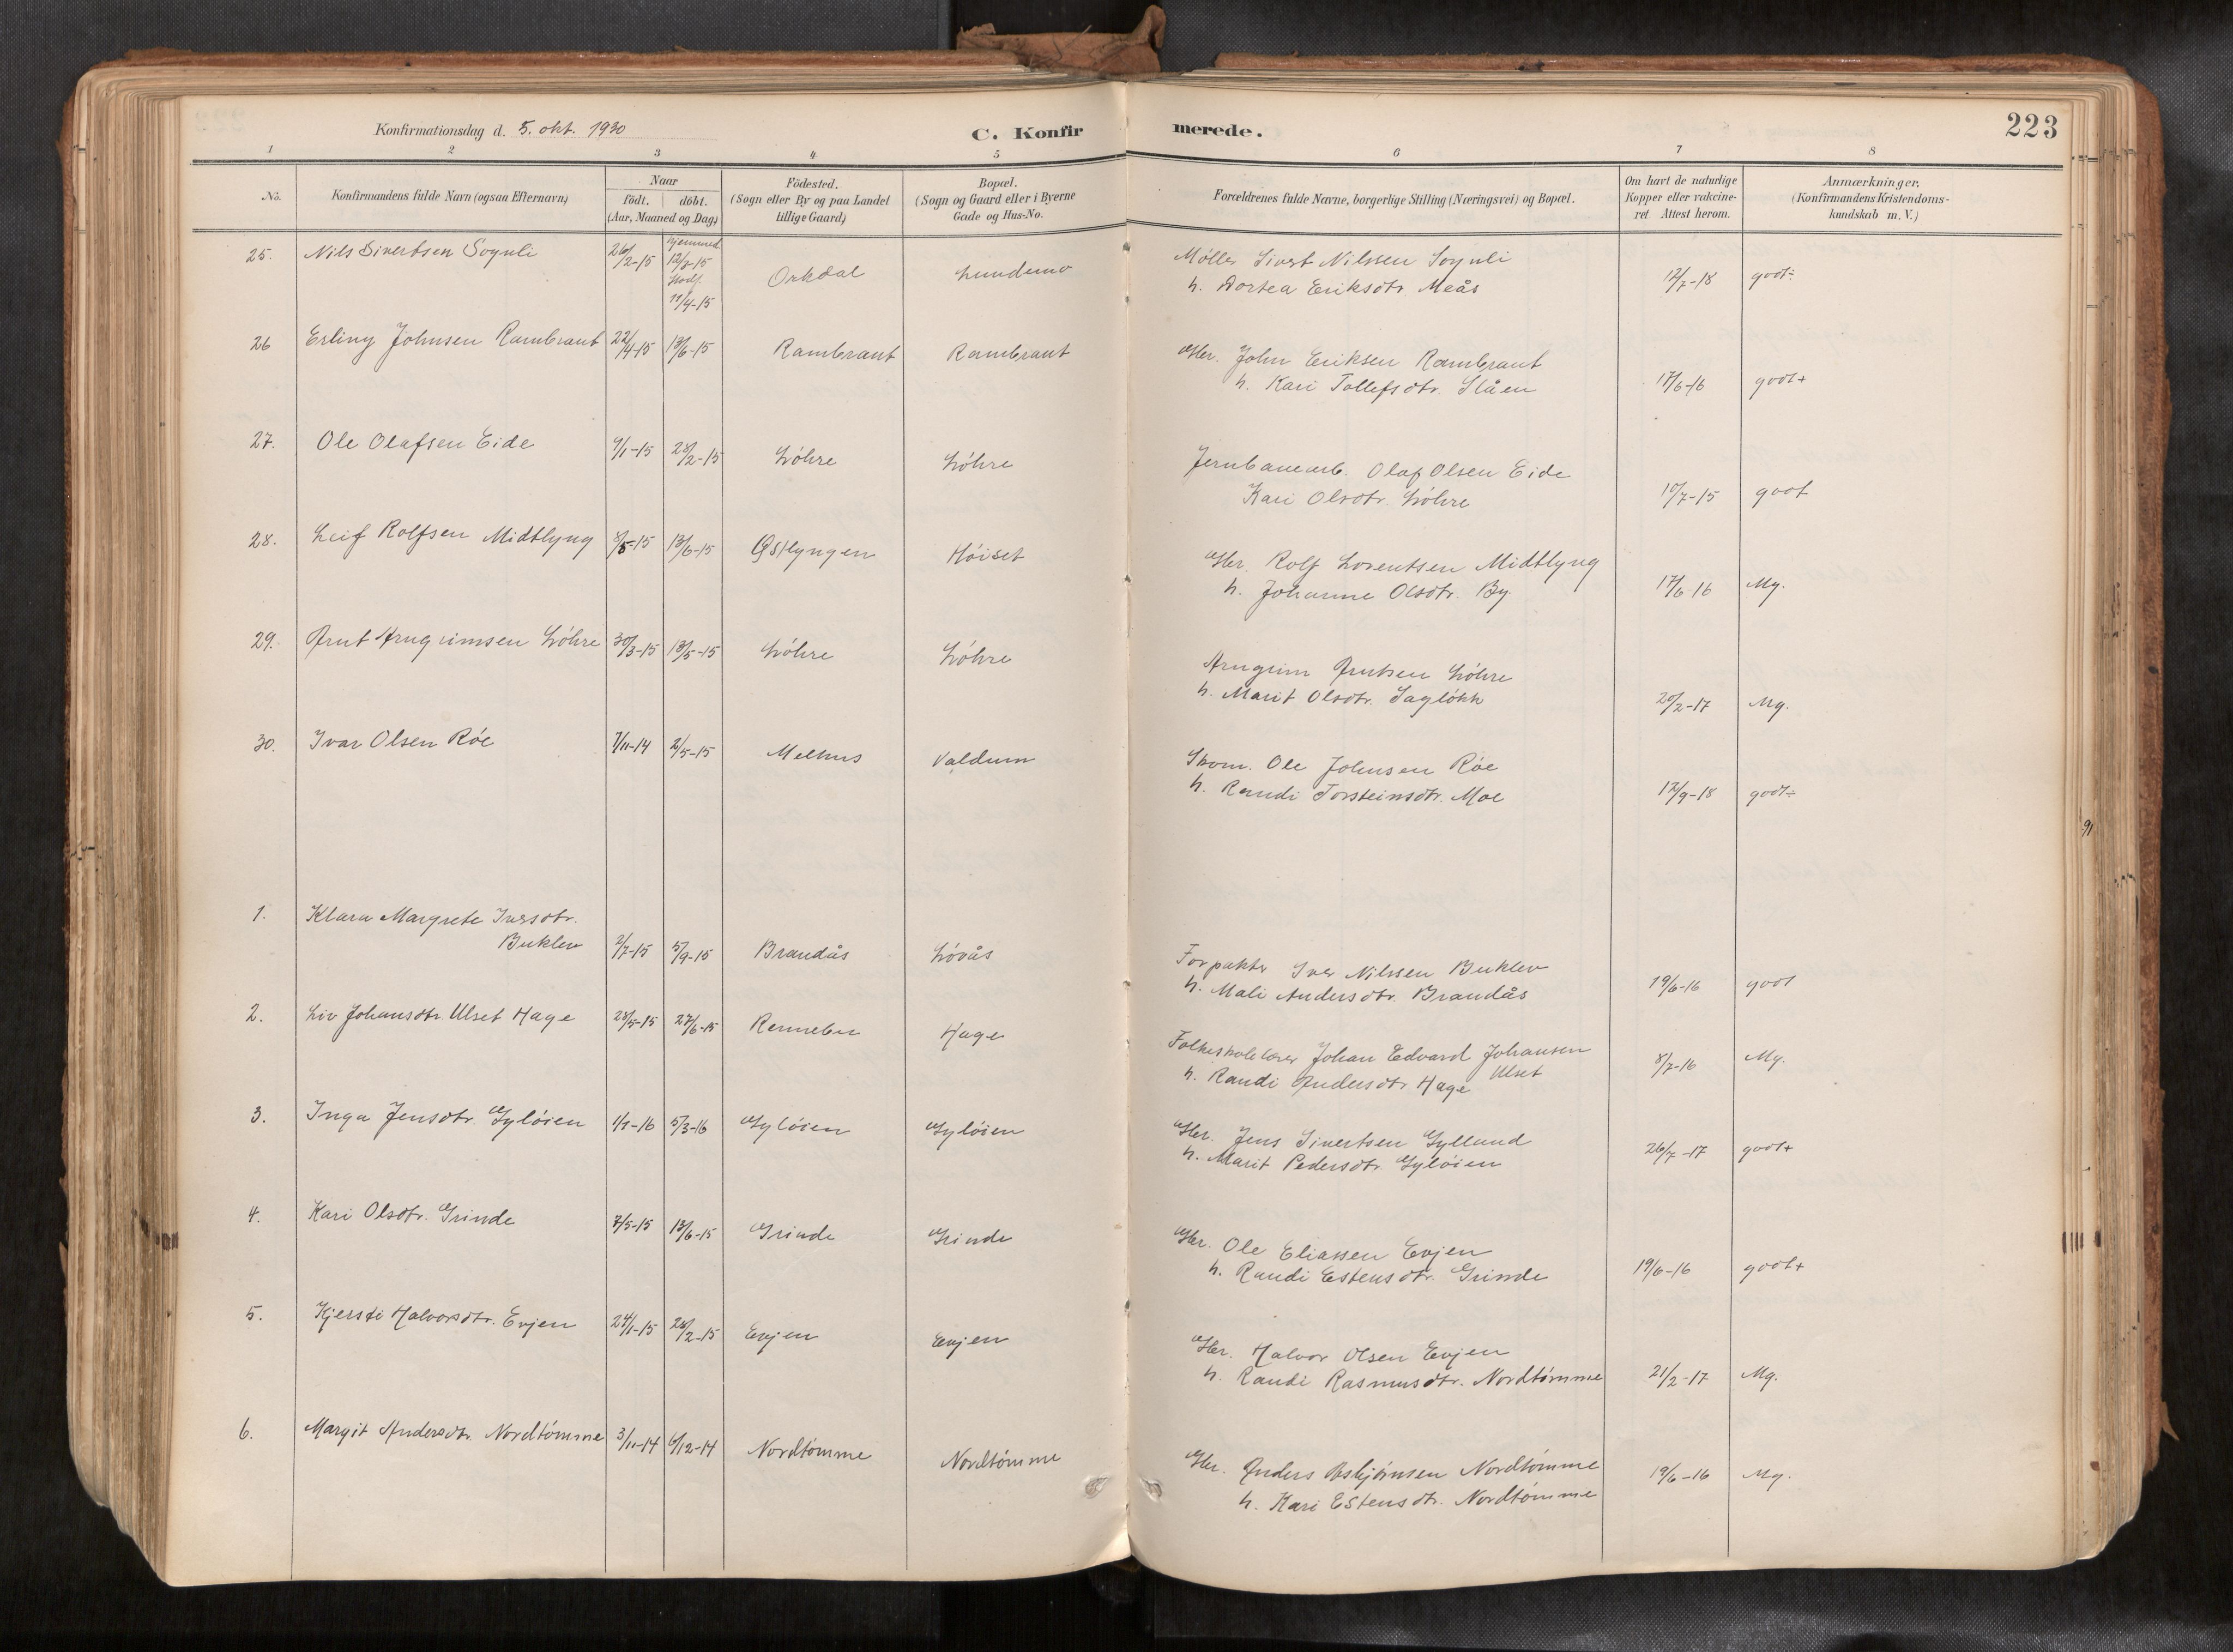 Konfirmationsdag d. 5. okt. 1930
C. Konfirmerede.
223
1 2 3 4 5 6 7 8
No.
Konfirmandens fulde Navn (ogsaa Efternavn)
Naar
födt. döbt.
(Aar, Maaned og Dag)
Födested.
(Sogn eller By og paa Landet
tillige Gaard)
Bopæl.
(Sogn og Gaard eller i Byerne
Gade og Hus-No.
Forældrenes fulde Navne, borgerlige Stilling (Næringsvei) og Bopæl.
Om havt de naturlige
Kopper eller vakcine-
ret. Attest herom.
Anmærkninger.
(Konfirmandens Kristendoms-
kundskab m. V.)
25. Nils Sivertsen Sognli 26/2-15 hjemmed. 12/3-15 Stadf. 11/4-15 Orkdal Lundemo Møller Sivert Nilssen Sognli 12/7-18 godt÷
h. Dortea Eriksdtr. Meås
26 Erling Johnsen Rambraut 22/4-15 13/6-15 Rambraut Rambraut Gbr. John Eriksen Rambraut
h. Kari Tollefsdtr. Slåen 17/6-16 godt+
27. Ole Olafsen Eide 9/1-15 28/2-15 Löhre Löhre Jernbanearb. Olaf Olsen Eide
Kari Olsdtr. Löhre 10/7-15 godt
28. Leif Rolfsen Midtlyng 8/5-15 13/6-15 Østlyngen Höiset Gbr. Rolf Lorentsen Midtlyng
h. Johanne Olsdtr. By. 17/6 16 Mg.
29. Arnt Arngrimsen Löhre 30/3-15 13/5-15 Löhre Löhre Arngrim Arntsen Löhre
h. Marit Olsdtr. Saglökk 20/2-17 Mg.
30. Ivar Olsen Röe 7/11-14 2/5-15 Melhus Valdum Skom. Ole Johnsen Röe
h. Randi Torsteinsdtr. Moe 12/9-18 godt÷
1. Klara Margrete Iversdtr.
Buklev 2/7-15 5/9-15 Brandås Lövås Forpakter Iver Nilssen Buklev
h. Mali Andersdtr. Brandås 19/6-16 godt
2. Liv Johansdtr. Ulset Hage 28/5-15 27/6-15 Rennebu Hage Folkeskolelærer Johan Edvard Johansen
Ulset
h. Randi Andersdtr Hage 8/7-16 Mg.
3. Inga Jensdtr. Gylöien 1/1-16 5/3-16 Gylöien Gylöien Gbr. Jens Sivertsen Gylland
h. Marit Pedersdtr. Gylöien 26/7-17 godt+
4. Kari Olsdtr. Grinde 7/5-15 13/6-15 Grinde Grinde Gbr. Ole Eliassen Evjen
h. Randi Estensdtr. Grinde 19/6-16 godt+
5. Kjersti Halvorsdtr. Evjen 24/1-15 28/2-15 Evjen Evjen Gbr. Halvor Olsen Evjen
h. Randi Rasmusdtr. Nordtömme 21/2-17 Mg.
6. Margit Andersdtr. Nordtömme 3/11-14 6/12-14 Nordtömme Nordtömme Gbr. Anders Asbjörnsen Nordtömme 19/6-16 Mg.
h. Kari Estensdtr. Nordtömme